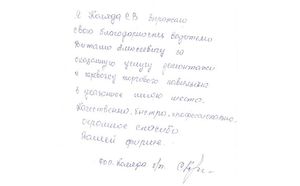 Я Коляда С.В. Выражаю
свою благодарность водителю
Виталию Алексеевичу за
оказанную услугу демонтажа
и перевозку торгового павильона
в указанное мною место.
Качественно, быстро, профессионально.
огромное спасибо
Вашей фирме.
Коляда